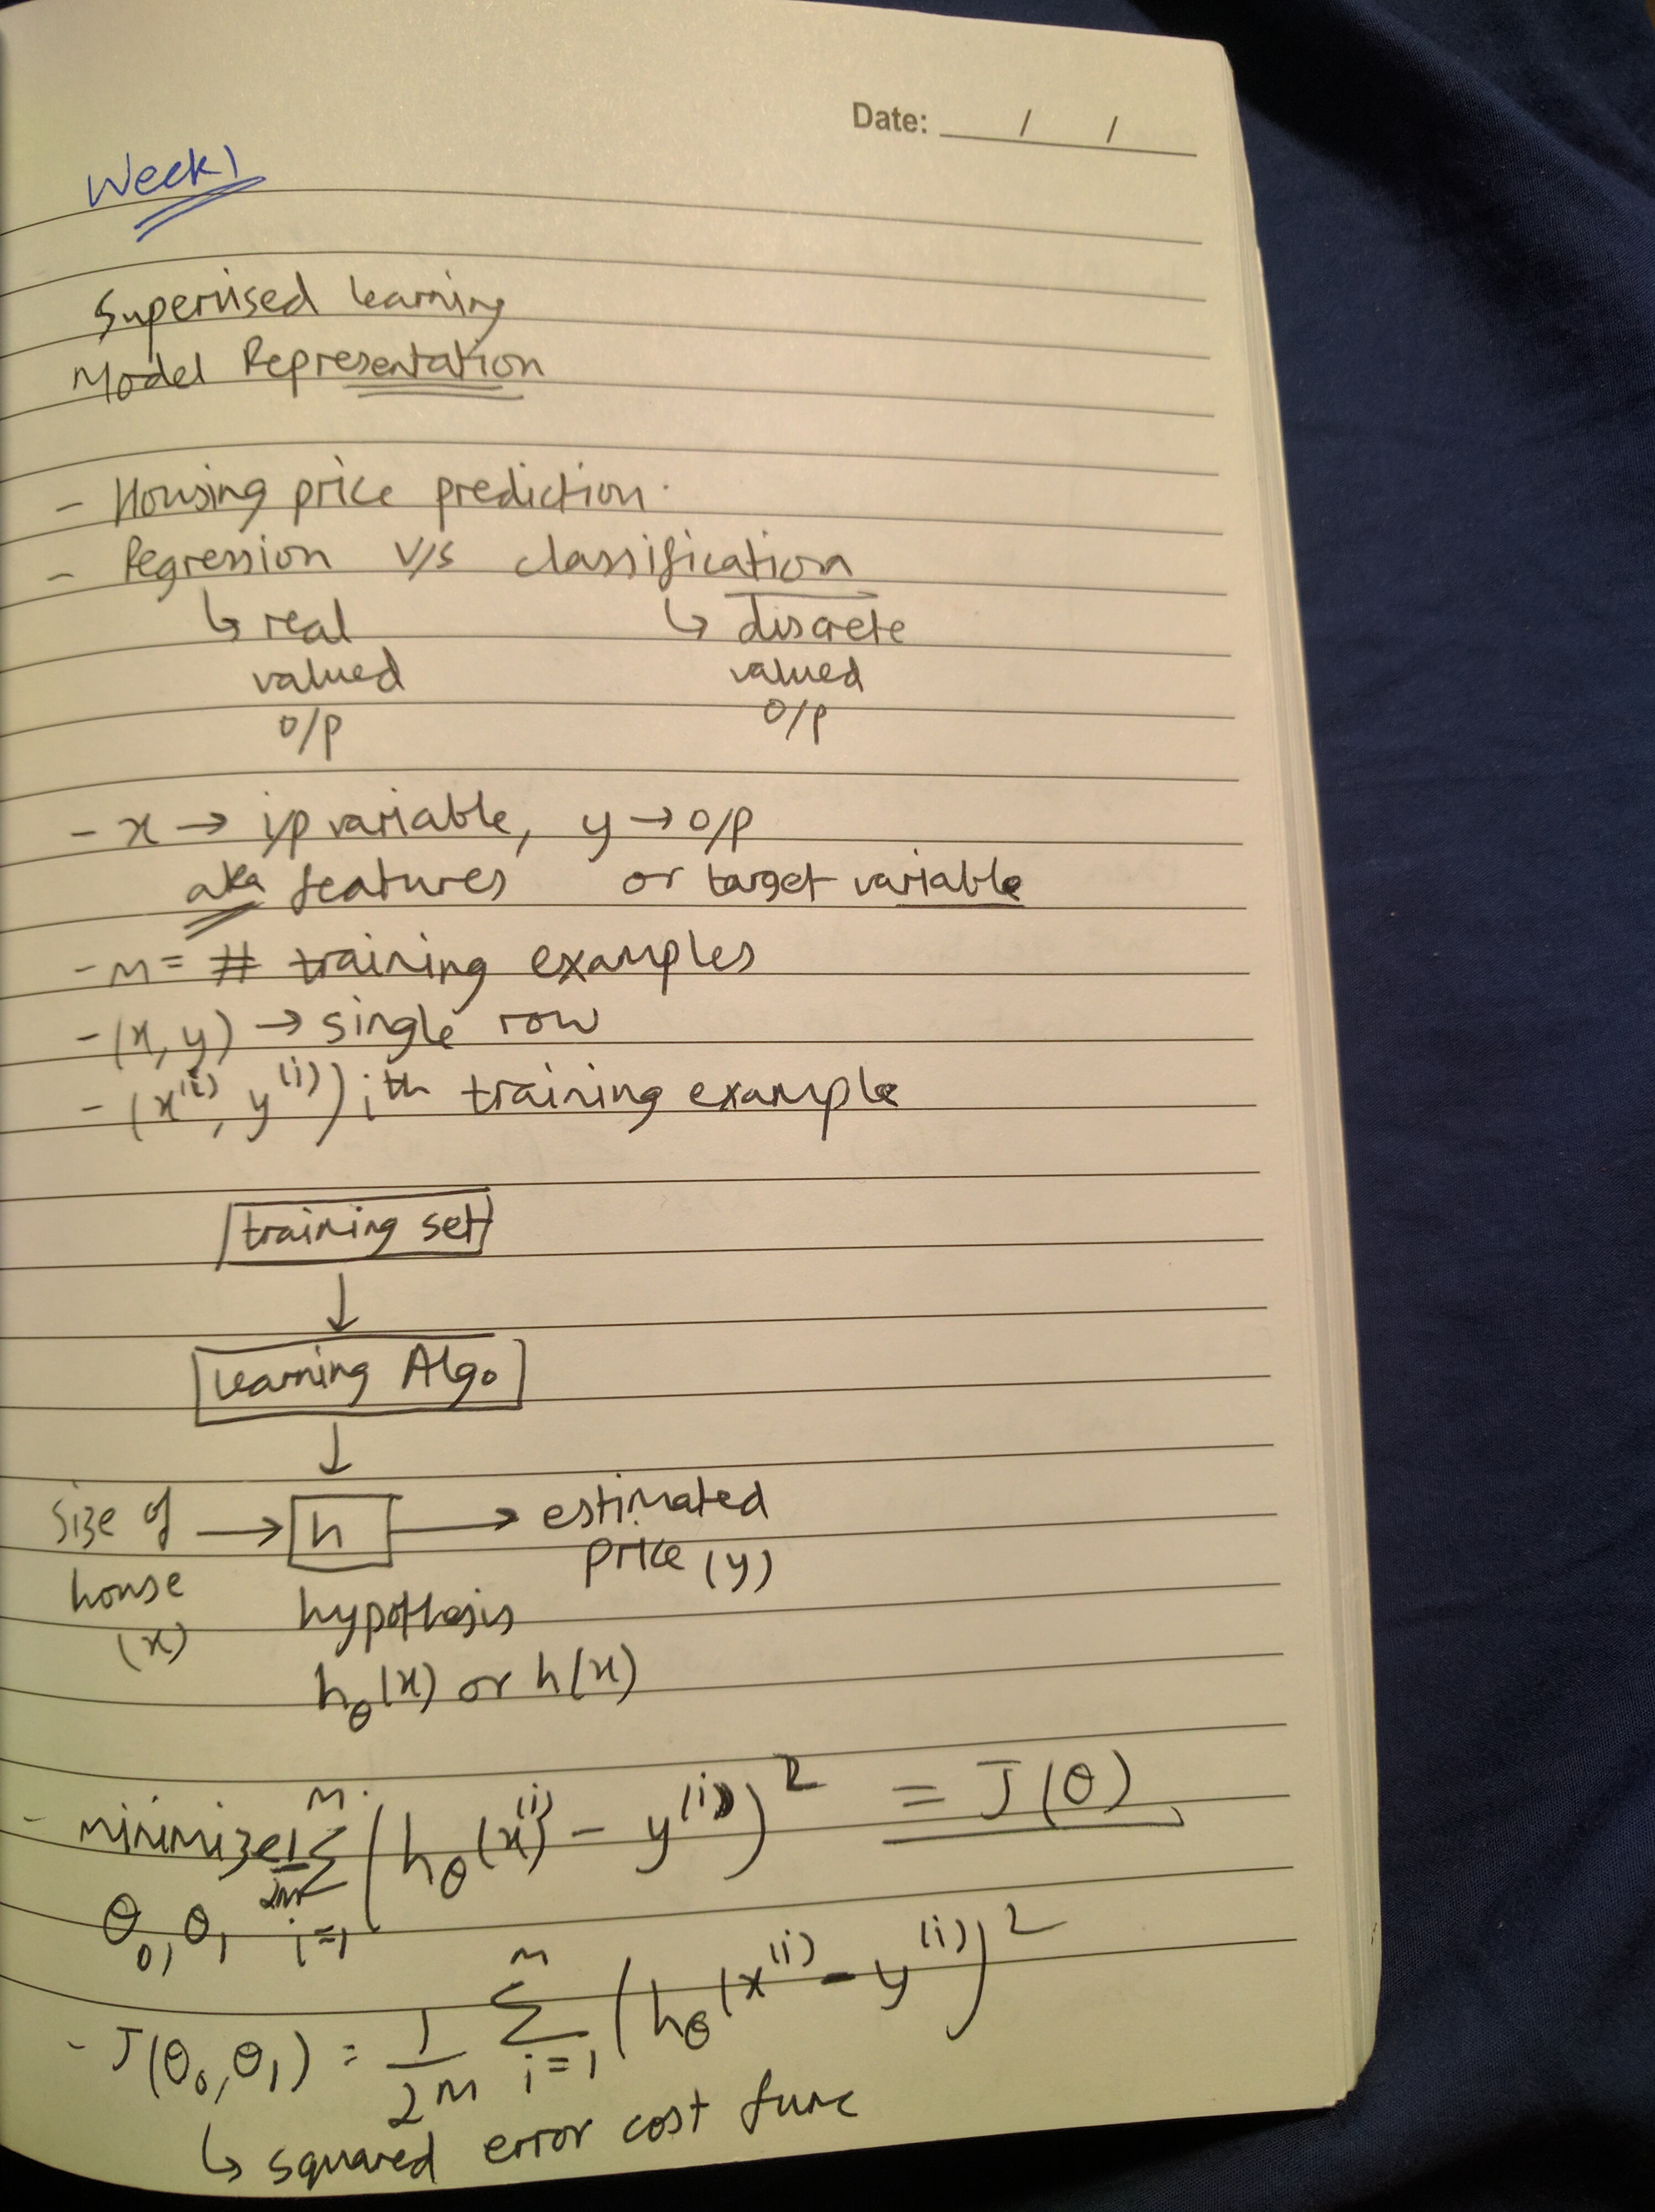 Date: / /
Week 1
Supervised learning
Model Representation
- Housing price prediction.
- Regression v/s classification
↳ real ↳ discrete
valued valued
o/p o/p
- x → i/p variable, y → o/p
aka features or target variable
- m = # training examples
- (x, y) → single row
- (x⁽ⁱ⁾, y⁽ⁱ⁾) iᵗʰ training example
training set
↓
learning Algo
↓
size of → h → estimated
house price (y)
(x) hypothesis
h_θ(x) or h(x)
- minimize 1/2m Σ_{i=1}^{m} (h_θ(x⁽ⁱ⁾) - y⁽ⁱ⁾)² = J(θ)
θ₀, θ₁
- J(θ₀, θ₁) = 1/2m Σ_{i=1}^{m} (h_θ(x⁽ⁱ⁾ - y⁽ⁱ⁾)²
↳ squared error cost func